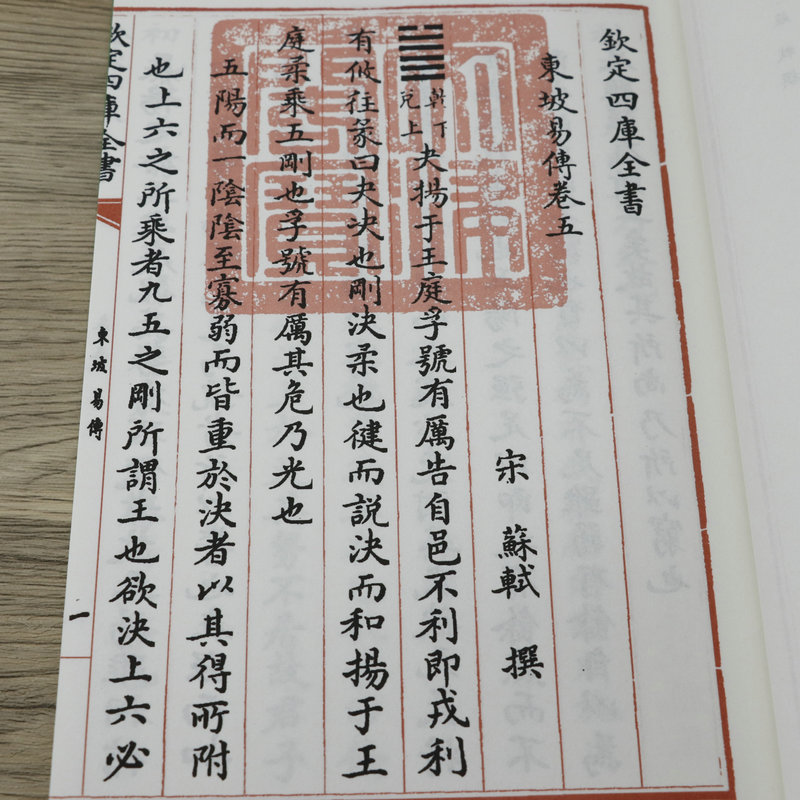 欽定四庫全書
東坡易傳卷五
宋 蘇軾 撰
乾下
兌上
夬揚于王庭孚號有厲告自邑不利即戎利
有攸往彖曰夬决也剛決柔也健而說決而和揚于王
庭柔乘五剛也孚號有厲其危乃光也
五陽而一陰陰至寡弱而皆重於決者以其得所附
也上六之所乘者九五之剛所謂王也欲決上六必
欽定四庫全書
東坡易傳
一